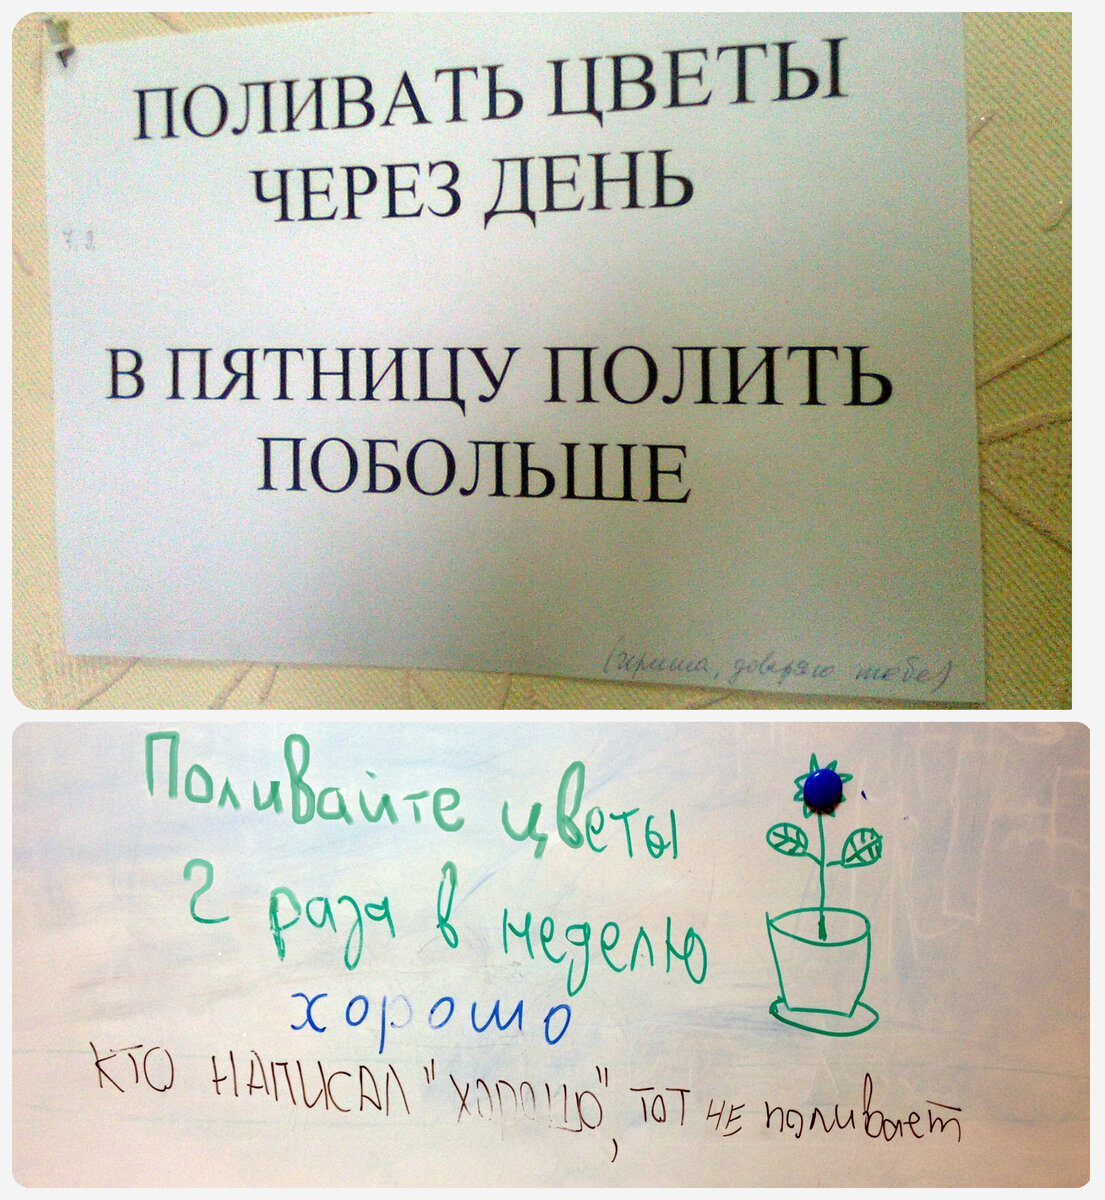 ПОЛИВАТЬ ЦВЕТЫ
ЧЕРЕЗ ДЕНЬ
В ПЯТНИЦУ ПОЛИТЬ
ПОБОЛЬШЕ
(Ириша, доверяю тебе)
Поливайте цветы
2 раза в неделю
хорошо
КТО НАПИСАЛ "ХОРОШО", ТОТ НЕ поливает